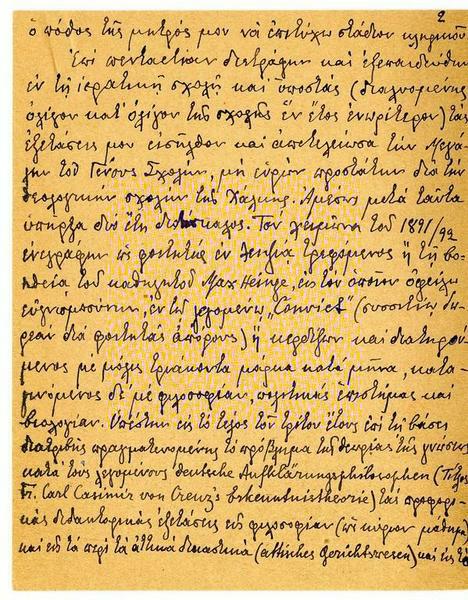 2
ὁ πόθος τῆς μητρός μου νὰ ἐπιτύχω στάδιον κληρικοῦ.
Ἐπὶ πενταετίαν διετράφην καὶ ἐξεπαιδεύθην
ἐν τῇ ἱερατικῇ σχολῇ καὶ ὑποστὰς (διαλυομένης
ὀλίγον κατ' ὀλίγον τῆς σχολῆς ἓν ἔτος ἐνωρίτερον) τὰς
ἐξετάσεις μου εἰσῆλθον καὶ ἀπετελείωσα τὴν Μεγά-
λην τοῦ Γένους Σχολήν, μὴ εὑρὼν προστάτην διὰ τὴν
θεολογικὴν σχολὴν τῆς Χάλκης. Ἀμέσως μετὰ ταῦτα
ὑπῆρξα δύο ἔτη διδάσκαλος. Τὸν χειμῶνα τοῦ 1891/92
ἐνεγράφην ὡς φοιτητὴς ἐν Λειψίᾳ τρεφόμενος ἢ τῇ βο-
ηθείᾳ τοῦ καθηγητοῦ Max Heinze, εἰς τὸν ὁποῖον ὀφείλω
εὐγνωμοσύνην, ἐν τῷ λεγομένῳ „Convict" (συσσιτίῳ δω-
ρεὰν διὰ φοιτητὰς ἀπόρους) ἢ κερδίζων καὶ διατηρού-
μενος μὲ μόλις τριάκοντα μάρκα κατὰ μῆνα, κατα-
γινόμενος δὲ μὲ φιλοσοφίαν, πολιτικὰς ἐπιστήμας καὶ
θεολογίαν. Ὑπέστην εἰς τὸ τέλος τοῦ τρίτου ἔτους ἐπὶ τῇ βάσει
διατριβῆς πραγματευομένης τὸ πρόβλημα τῆς θεωρίας τῆς γνώσεως
κατὰ τοὺς λεγομένους deutsche Aufklärungsphilosophen (Τίτλος
Fr. Carl Casimir von Creuz's Erkenntnistheorie) τὰς προφορι-
κὰς διδακτορικὰς ἐξετάσεις εἰς φιλοσοφίαν (ὡς κύριον μάθημα)
καὶ εἰς τὰ περὶ τὰ ἀττικὰ δικαστικὰ (attisches Gerichtswesen) καὶ εἰς τὰ